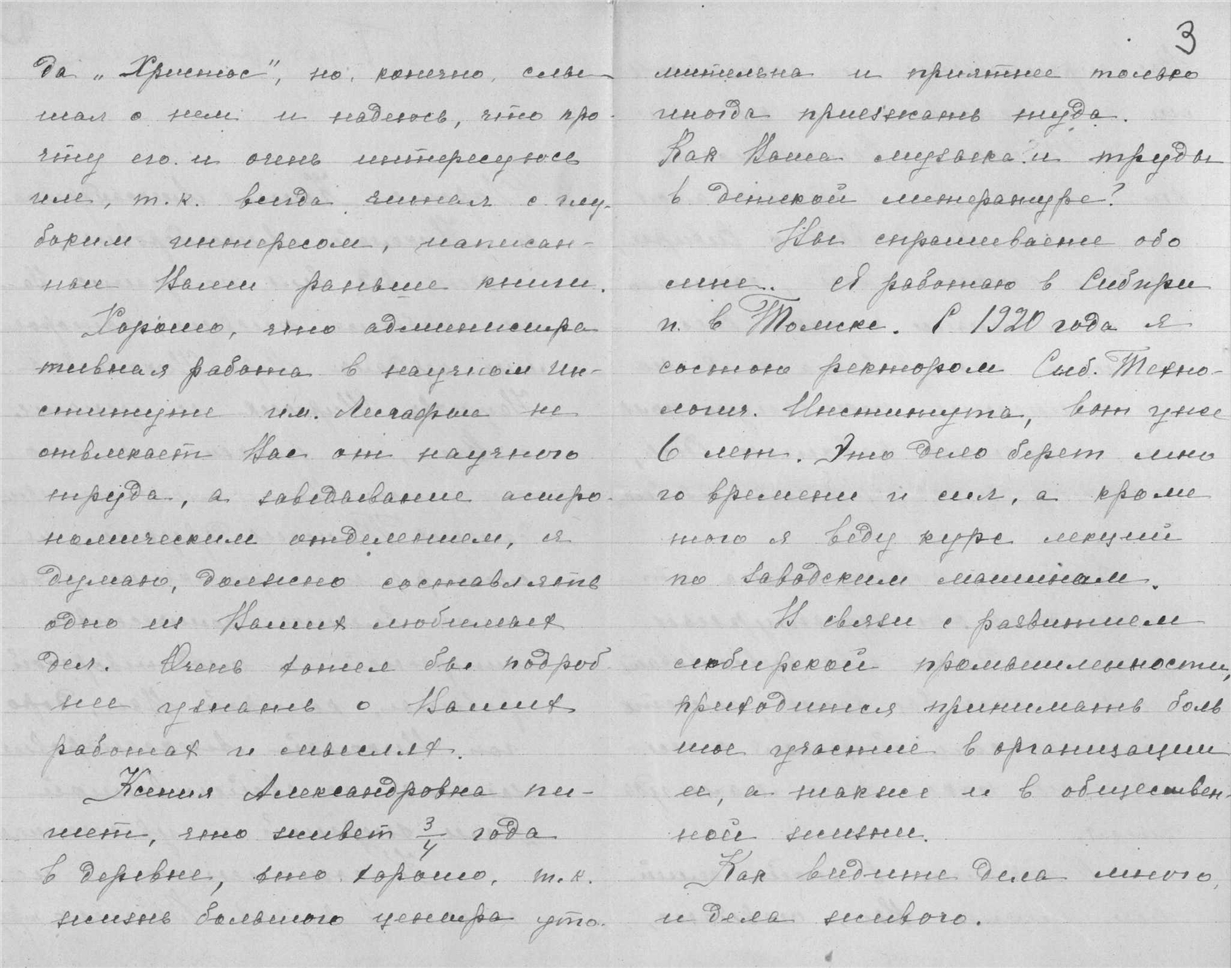 да „Христос", но конечно слы-
шал о нем и надеюсь, что про-
чту его и очень интересуюсь
им, т.к. всегда читал с глу-
боким интересом, написан-
ные Вами раньше книги.
Хорошо, что администра
тивная работа в научном Ин-
ституте им. Лесгафта не
отвлекает Вас от научного
труда, а заведывание астро-
номическим отделением, я
думаю, должно составлять
одно из Ваших любимых
дел. Очень хотел бы подроб-
нее узнать о Ваших
работах и мыслях.
Ксения Александровна пи-
шет, что живет 3/4 года
в деревне, это хорошо, т.к.
жизнь большого центра уто-
3
мительна и приятнее только
иногда приезжать туда.
Как Ваша музыка и труды
в детской литературе?
Вы спрашиваете обо
мне.. Я работаю в Сибири
и в Томске. С 1920 года я
состою ректором Сиб. Техно-
логич. Института, вот уже
6 лет. Это дело берет мно
го времени и сил, а кроме
того я веду курс лекций
по заводским машинам.
В связи с развитием
сибирской промышленности,
приходится принимать боль
шое участие в организации
ее, а также и в обществен-
ной жизни.
Как видите дела много,
и дела живого.